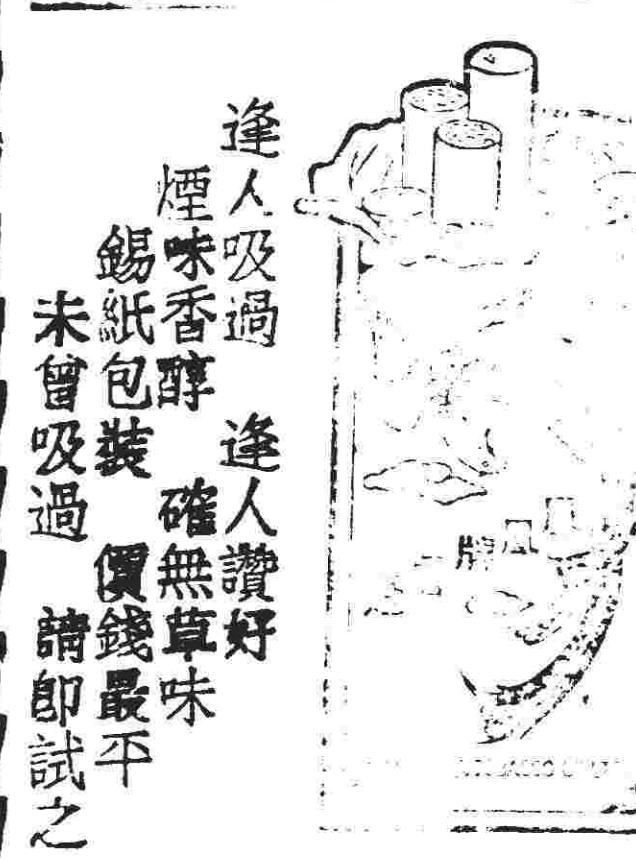 逢人吸過　逢人讚好
煙味香醇　確無草味
錫紙包裝　價錢最平
未曾吸過　請即試之